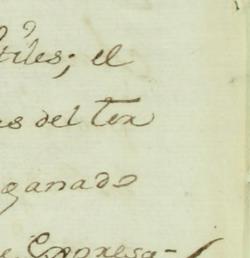 tiles; el
es del Ten
ganado
e Expresa-